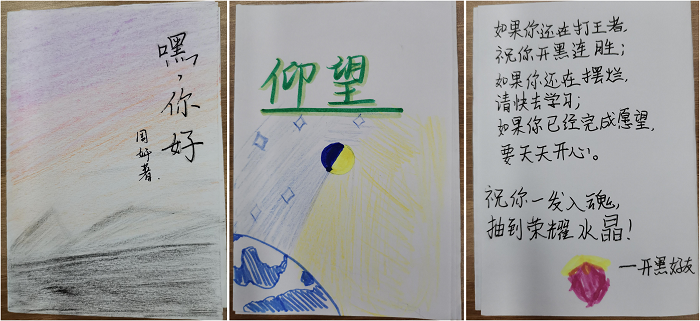 嘿，你好
周好著.
仰望
如果你还在打王者，
祝你开黑连胜；
如果你还在摆烂，
请快去学习；
如果你已经完成愿望，
要天天开心。
祝你一发入魂，
抽到荣耀水晶！
——开黑好友